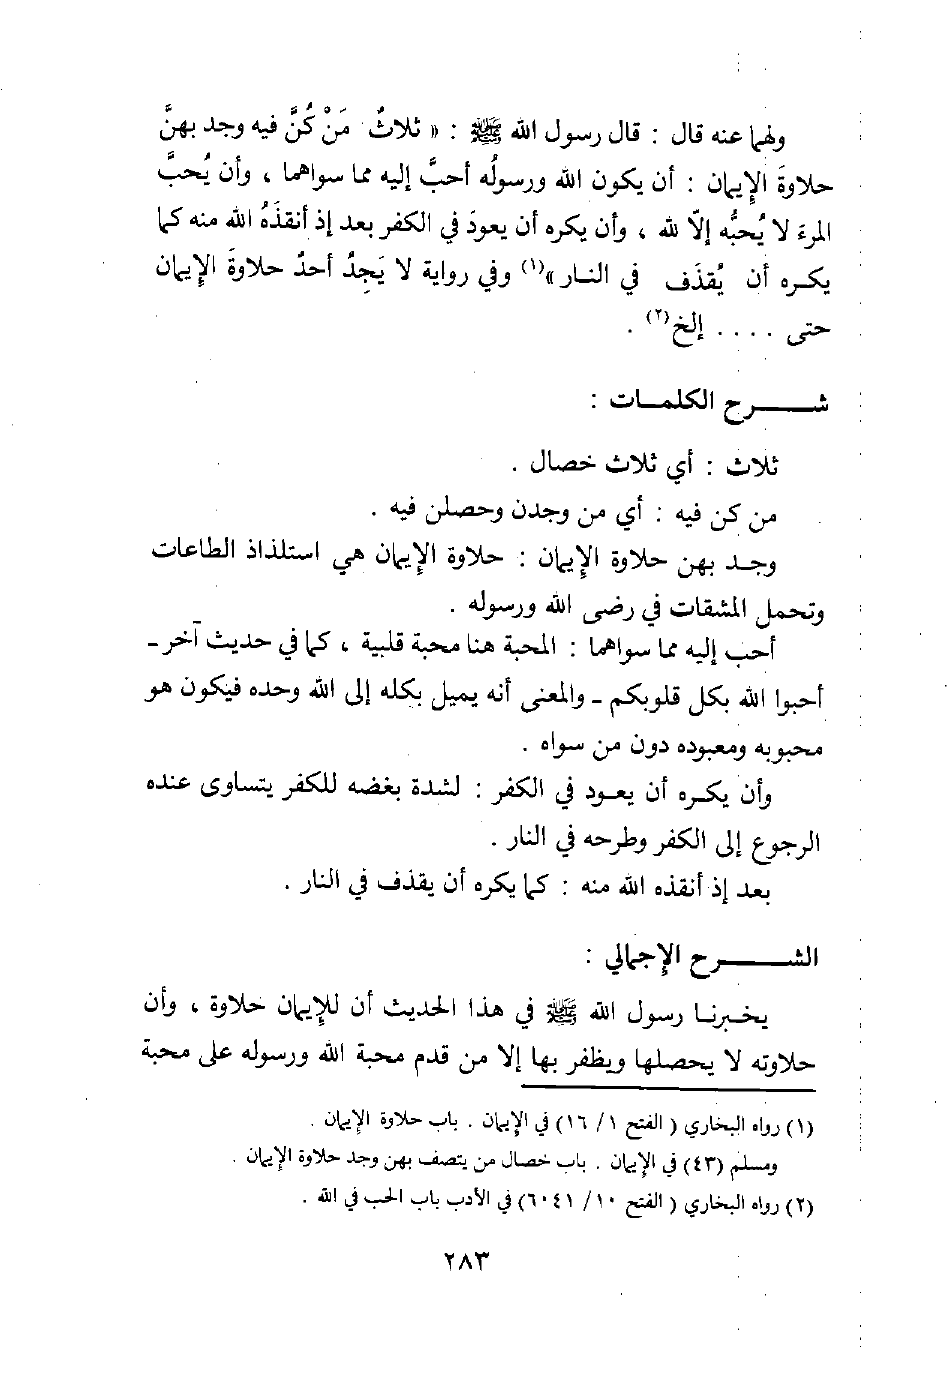 ولهما عنه قال : قال رسول الله ﷺ : « ثلاثٌ مَنْ كُنَّ فيه وجد بهنَّ
حلاوةَ الإيمان : أن يكون الله ورسولُه أحبَّ إليه مما سواهما ، وأن يُحبَّ
المرءَ لا يُحبُّه إلاّ لله ، وأن يكره أن يعودَ في الكفر بعد إذ أنقذَهُ الله منه كما
يكره أن يُقذَف في النار »(١) وفي رواية لا يَجِدُ أحدٌ حلاوةَ الإيمان
حتى .... إلخ(٢) .
شرح الكلمات :
ثلاث : أي ثلاث خصال .
من كن فيه : أي من وجدن وحصلن فيه .
وجد بهن حلاوة الإيمان : حلاوة الإيمان هي استلذاذ الطاعات
وتحمل المشقات في رضى الله ورسوله .
أحب إليه مما سواهما : المحبة هنا محبة قلبية ، كما في حديث آخر ـ
أحبوا الله بكل قلوبكم ـ والمعنى أنه يميل بكله إلى الله وحده فيكون هو
محبوبه ومعبوده دون من سواه .
وأن يكره أن يعود في الكفر : لشدة بغضه للكفر يتساوى عنده
الرجوع إلى الكفر وطرحه في النار .
بعد إذ أنقذه الله منه : كما يكره أن يقذف في النار .
الشرح الإجمالي :
يخبرنا رسول الله ﷺ في هذا الحديث أن للإيمان حلاوة ، وأن
حلاوته لا يحصلها ويظفر بها إلا من قدم محبة الله ورسوله على محبة
(١) رواه البخاري ( الفتح ١ / ١٦) في الإيمان . باب حلاوة الإيمان .
ومسلم (٤٣) في الإيمان . باب خصال من يتصف بهن وجد حلاوة الإيمان .
(٢) رواه البخاري ( الفتح ١٠ / ٦٠٤١) في الأدب باب الحب في الله .
٢٨٣